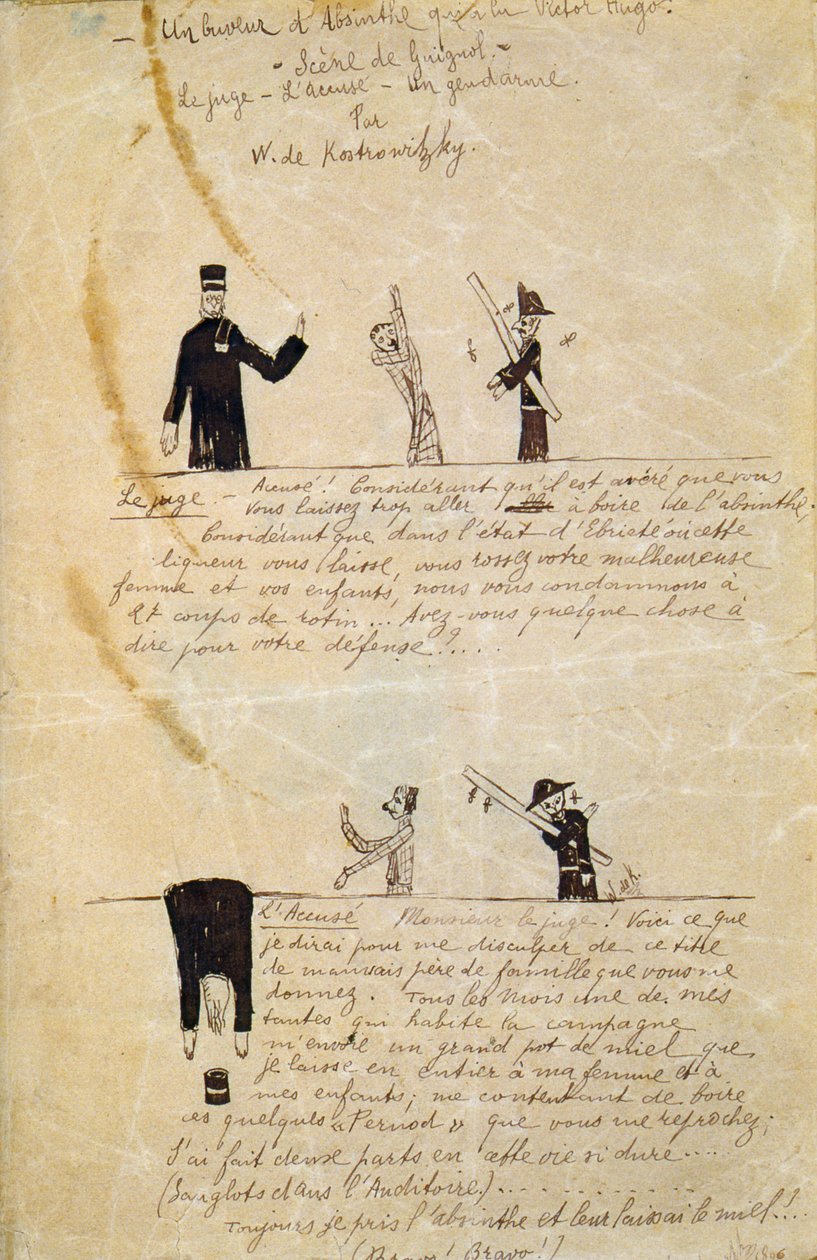 — Un buveur d'Absinthe qui a lu Victor Hugo. —
- Scène de Guignol. -
Le juge - L'Accusé - Un gendarme.
Par
W. de Kostrowitzky.
Le juge. - Accusé! Considérant qu'il est avéré que vous
vous laissez trop aller à boire de l'absinthe;
Considérant que dans l'état d'Ebrieté où cette
liqueur vous laisse, vous rossez votre malheureuse
femme et vos enfants, nous vous condamnons à
27 coups de rotin... Avez-vous quelque chose à
dire pour votre défense?....
W. de K.
L'Accusé Monsieur le juge! Voici ce que
je dirai pour me disculper de ce titre
de mauvais père de famille que vous me
donnez. Tous les mois une de mes
tantes qui habite la campagne
m'envoie un grand pot de miel que
je laisse en entier à ma femme et à
mes enfants; me contentant de boire
ces quelques «Pernod» que vous me reprochez;
J'ai fait deux parts en cette vie si dure....
(Sanglots dans l'Auditoire.)...........
Toujours je pris l'absinthe et leur laissai le miel!...
(Bravo! Bravo!)